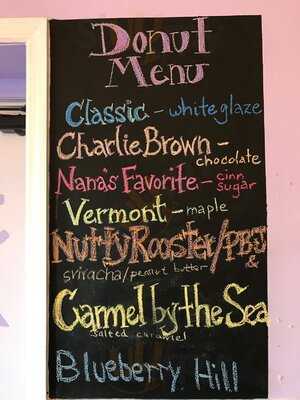 Donut
Menu
Classic - white glaze
Charlie Brown -
chocolate
Nana's Favorite - cinn
sugar
Vermont - maple
Nutty Rooster/PB&J
sriracha/peanut butter
Carmel by the Sea
salted caramel
Blueberry Hill